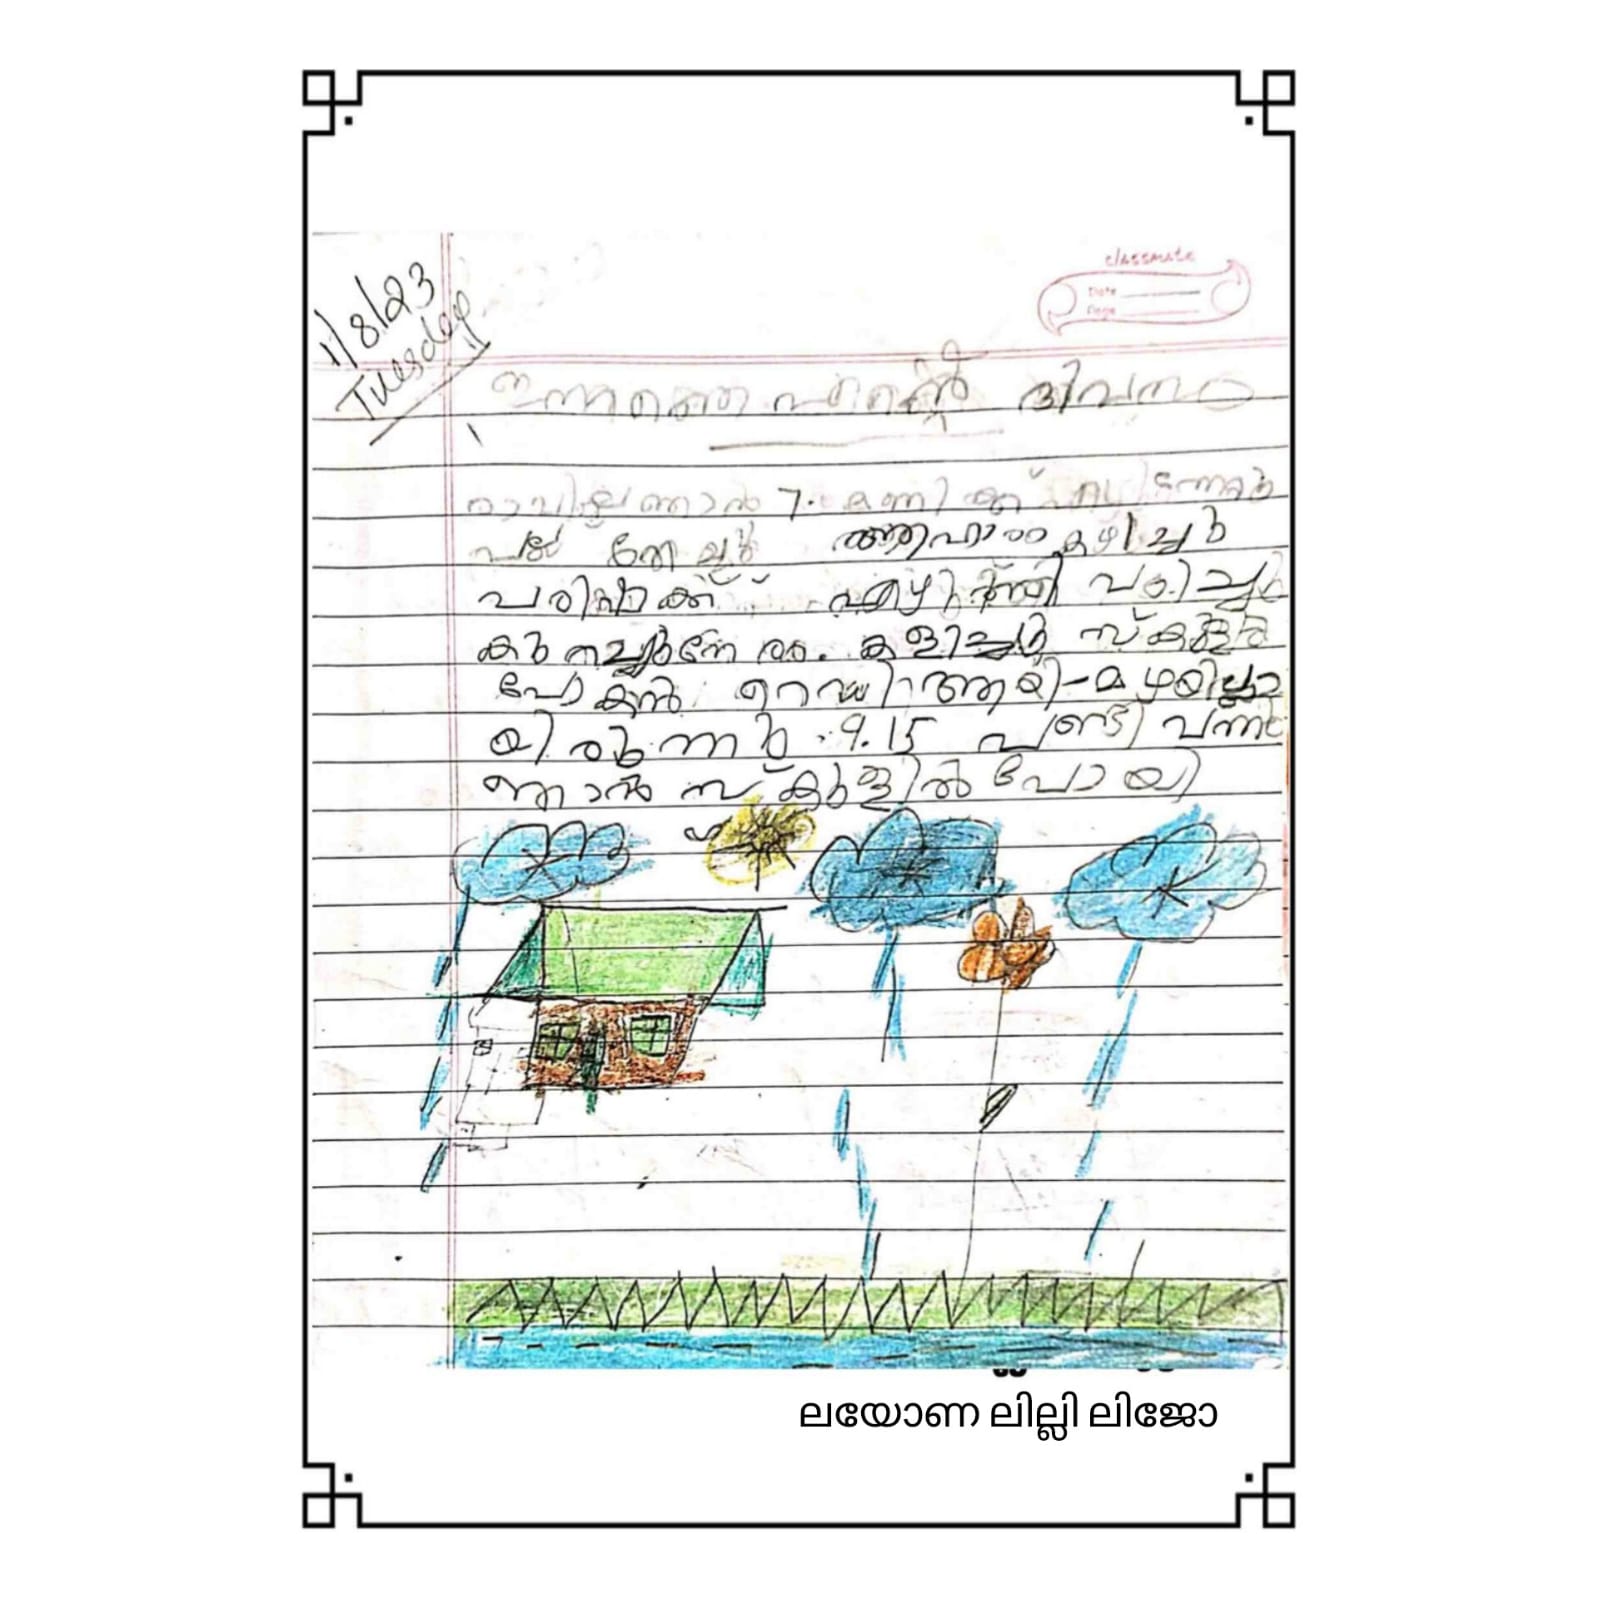 1/8/23
Tuesday
classmate
Date
Page
ഇന്നത്തെ എന്റെ ദിവസം
രാവിലെ ഞാൻ 7. മണി ക്ക്
പല്ല് തേച്ചു ആഹാരം കഴിച്ചു
പരീക്ഷക്ക് പഠിച്ചു
കളിച്ചു സ്കൂളിൽ
പോകൻ റെഡി ആയി മഴയില്ലാ
യിരുന്നു. 9.15 വണ്ടി വന്നു
ഞാൻ സ്കൂളിൽ പോയി
ലയോണ ലില്ലി ലിജോ